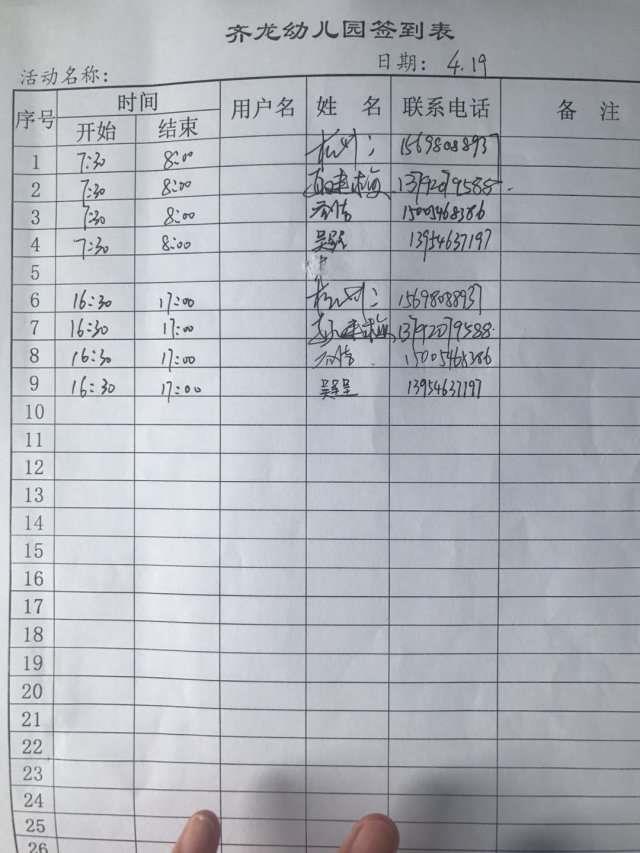 齐龙幼儿园签到表
活动名称： 日期： 4.19
序号 时间 用户名 姓 名 联系电话 备 注
开始 结束
1 7:30 8:00 15698088937
2 7:30 8:00 13792079588
3 7:30 8:00 15005468386
4 7:30 8:00 13954637197
5
6 16:30 17:00 15698088937
7 16:30 17:00 13792079588
8 16:30 17:00 15005468386
9 16:30 17:00 13954637197
10
11
12
13
14
15
16
17
18
19
20
21
22
23
24
25
26